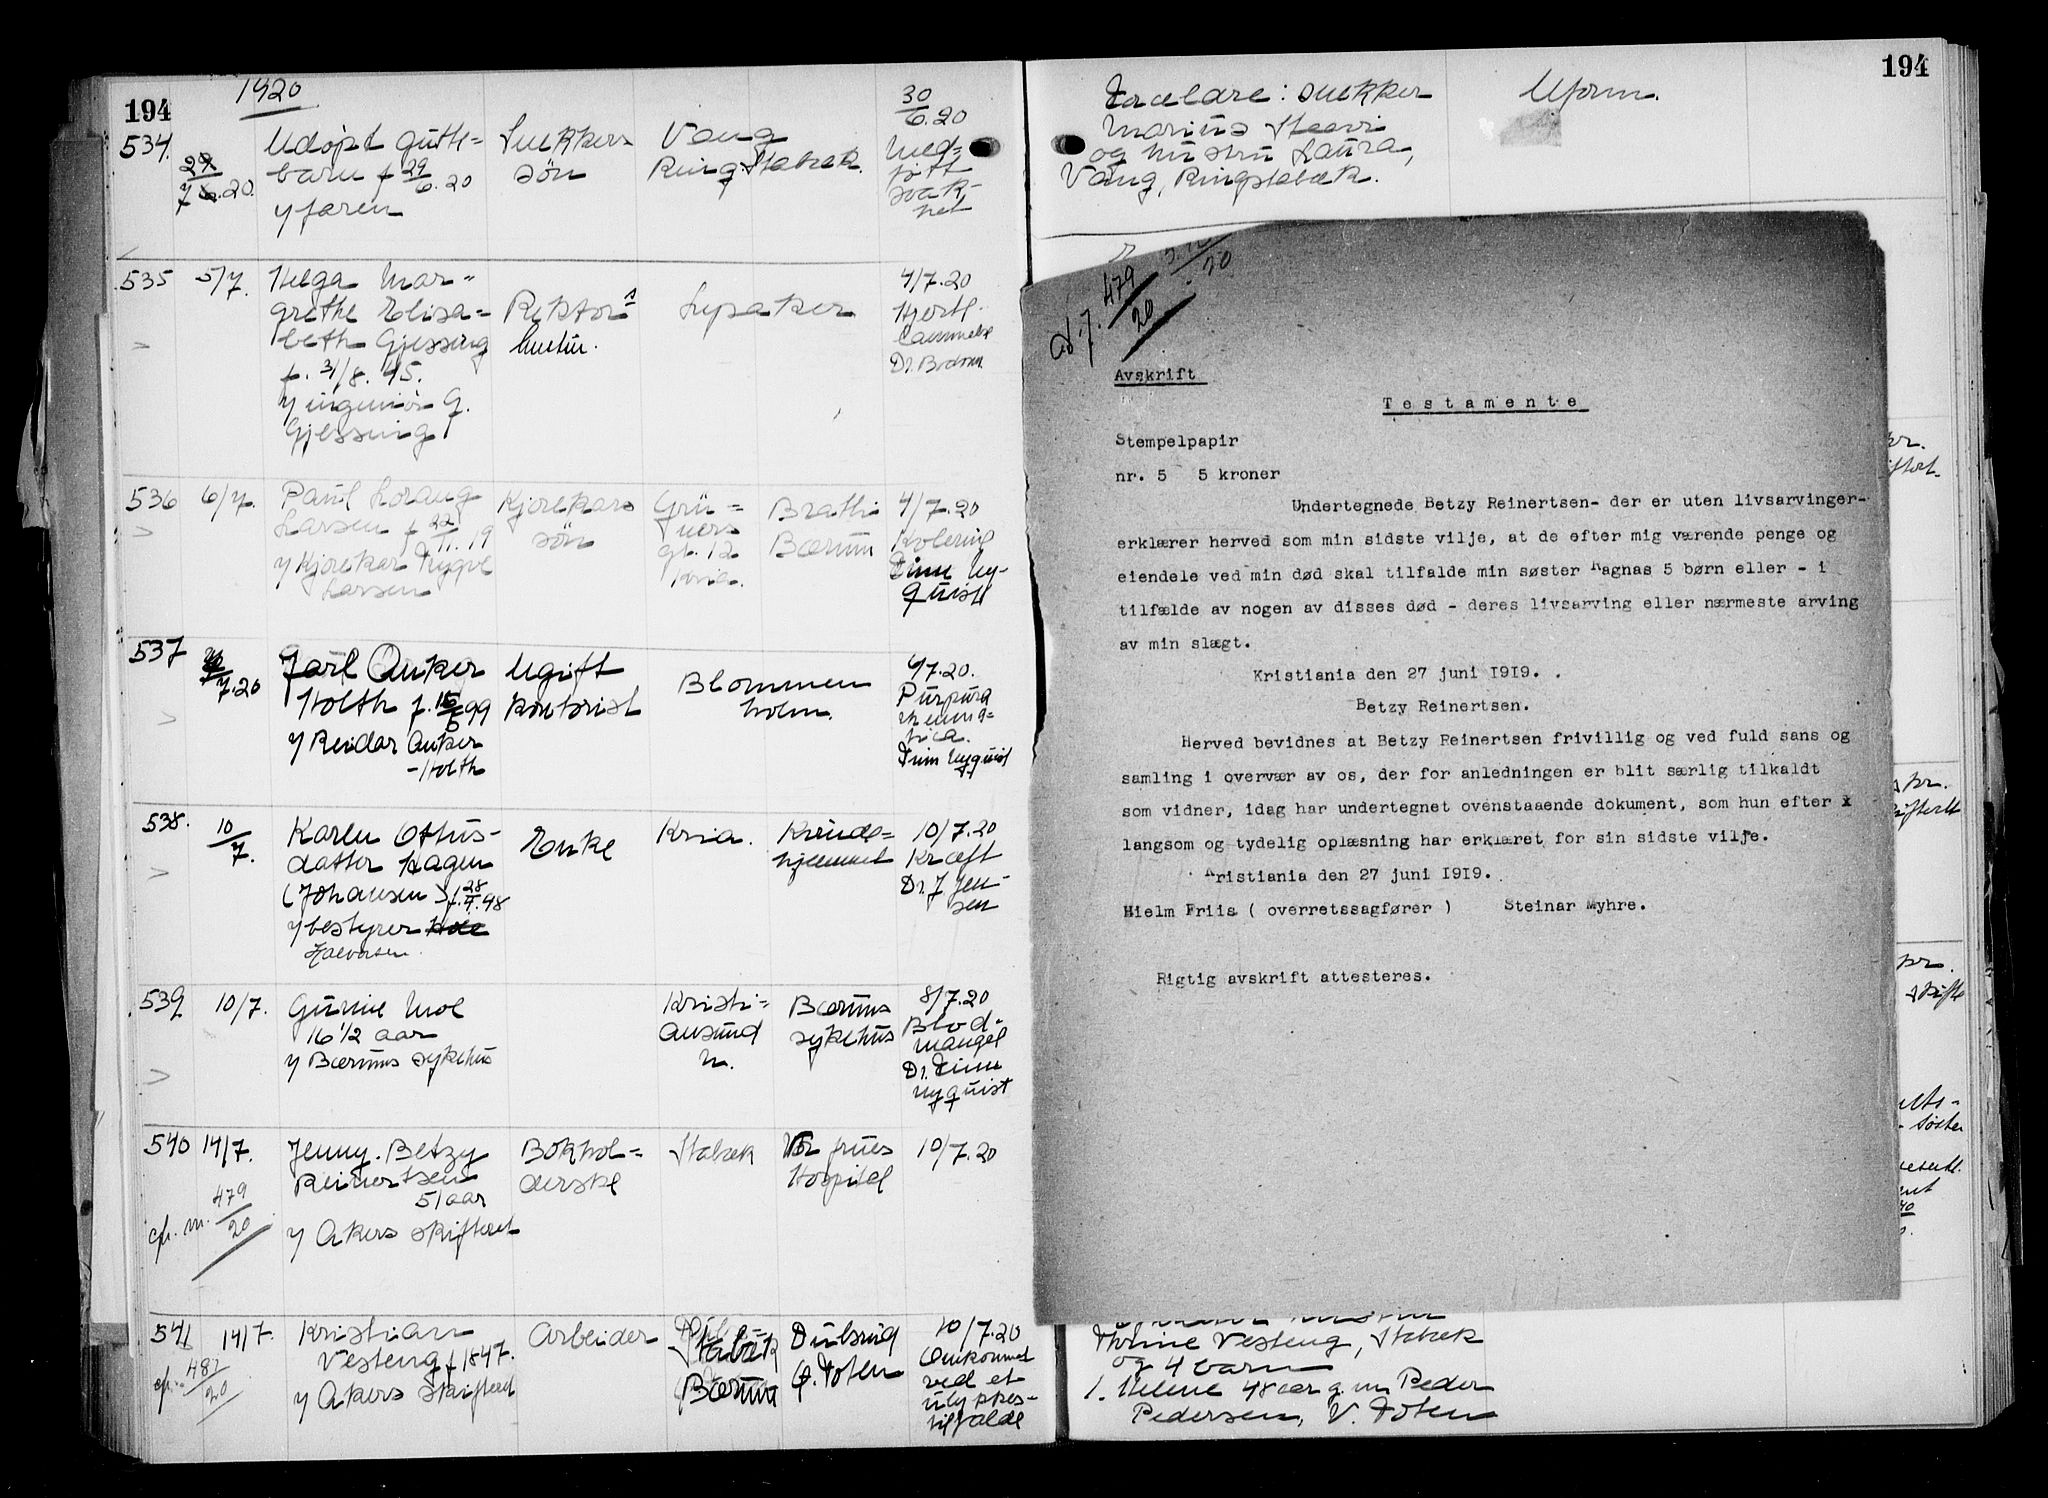 194
1920
534.
29/7 6.20.
Udøpt gutte-
barn f 29/6.20
v/ faren
Snekkers
søn
Vang
Ringstabæk.
30/6.20
Med-
født
svak-
het
535
5/7.
Helga Mar-
grethe Elisa-
beth Gjessing
f. 31/8.45.
v/ ingeniör G.
Gjessing
Rektors
hustru.
Lysaker
4/7.20
Hjertl.
Dr. Bodom
536
6/7.
Paul Lorang
Larsen f 22/11.19
v/ Kjørekar Trygve
Larsen
Kjørekars
søn
Grü-
ners
gt. 12
Kria.
Brathi
Bærum
4/7.20
Kolerine
Finn Ny-
quist
537
7.20
Jarl Anker
Holth f. 15/6 99
v/ Reidar Anker
-Holth
Ugift
kontorist
Blommen
holm.
6/7.20.
Purpura
rheuma-
tica.
Finn Nyquist
538.
10/7.
Karen Ottus-
datter Hagen
(Johansen) f. 28/7.48
v/ bestyrer
Halvorsen.
Enke
Kria.
Kvinde-
hjemmet
10/7.20
Kræft
Dr. J Jen-
sen
539
10/7.
Gunnie Moe
16 1/2 aar
v/ Bærums sykehus
Kristi-
ansund
n.
Bærums
sykehus
8/7.20
Blod-
mangel
Dr. Finn
Nyquist
540
14/7.
Jenny Betzy
Reinertsen
51 aar
v/ Akers skifteret
cfr. m. 479/20
Bokhol-
derske
Stabæk
Vor frues
Hospital
10/7.20
541
14/7.
cfr. 487/20
Kristian
Vesteng f 1847.
v/ Akers skifteret
Arbeider
Stabæk
Bærum
Dulsrud
Ø. Toten
10/7.20
Omkommet
ved et
ulykkes-
tilfælde
194
Forældre: snekker
Marius
og hustru Laura,
Vang, Ringstabæk.
Uform.
479/20
Avskrift
Testamente
Stempelpapir
nr. 5 5 kroner
Undertegnede Betzy Reinertsen- der er uten livsarvinger-
erklærer herved som min sidste vilje, at de efter mig værende penge og
eiendele ved min død skal tilfalde min søster Ragnas 5 børn eller - i
tilfælde av nogen av disses død - deres livsarving eller nærmeste arving
av min slægt.
Kristiania den 27 juni 1919.
Betzy Reinertsen.
Herved bevidnes at Betzy Reinertsen frivillig og ved fuld sans og
samling i overvær av os, der for anledningen er blit særlig tilkaldt
som vidner, idag har undertegnet ovenstaaende dokument, som hun efter x
langsom og tydelig oplæsning har erklæret for sin sidste vilje.
Kristiania den 27 juni 1919.
Hielm Friis ( overretssagfører ) Steinar Myhre.
Rigtig avskrift attesteres.
Thrine Vesteng, Stabæk
og 4 barn
1. Helene 48 aar g. m. Peder
Pedersen, V. Toten